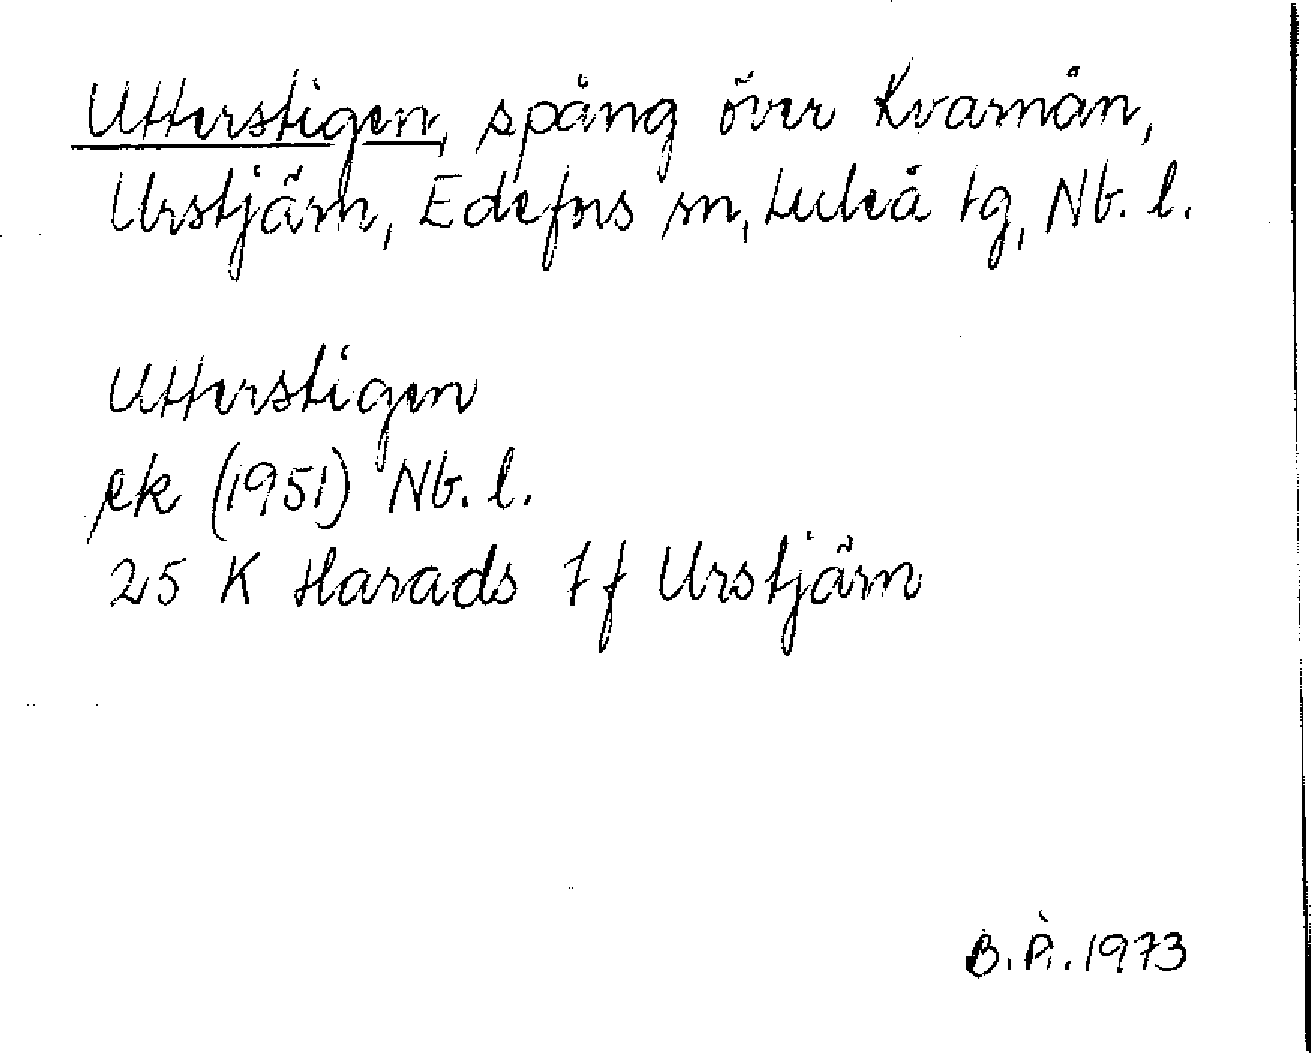 Utterstigen, spång över Kvarnån,
Urstjärn, Edefors sn, Luleå tg, Nb. l.
Utterstigen
ek (1951) Nb. l.
25 K Harads 7 f Urstjärn
B.Å.1973